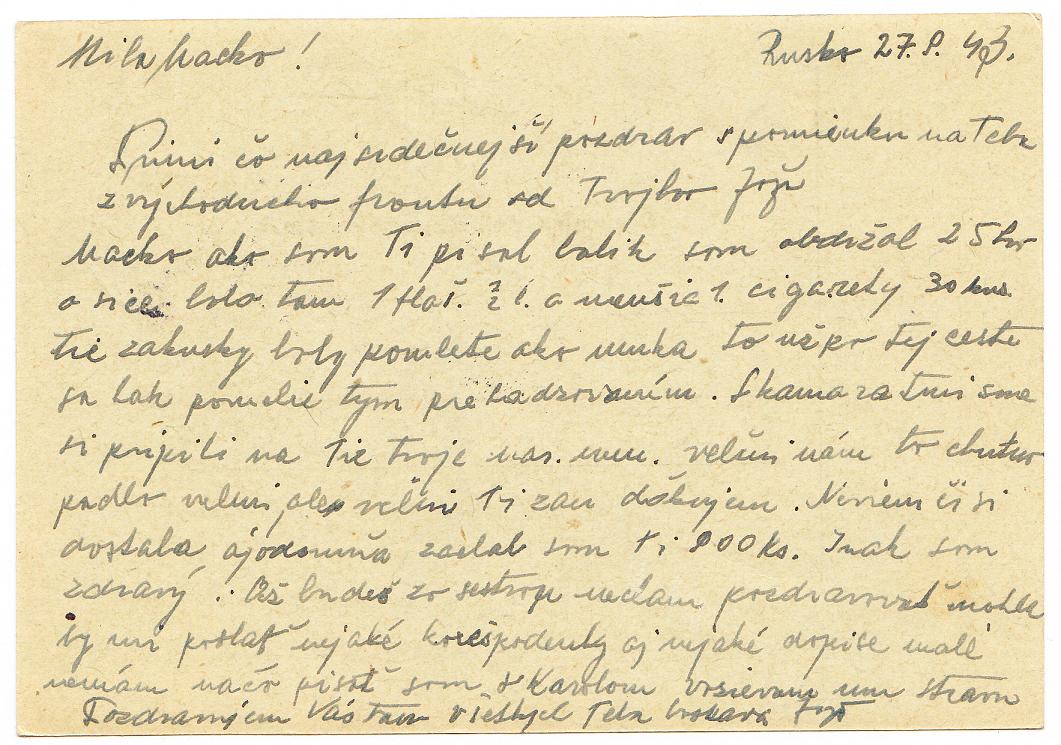 Milá Macko! Rusko 27.8.43.
Prími čo najsrdečnejší pozdrav spomienku na Teba
z východneho frontu od Tvojho Joža
Macko ako som Ti písal balik som obdržal 25ho
a sice bolo tam 1 flaš. ½ l. a menšia 1. cigarety 30 kus.
tie zakusky boly pomlete ako muka to už po tej ceste
sa tak pomelie tym prehadzovaním. S kamaratmi sme
si pripili na Tie tvoje velmi nám to chutno
padlo velmi, ale velmi Ti zan ďakujem. Neviem či si
dostala ajodomňa zaslal som ti 800 Ks. Inak som
zdravý. Až budeš zo sestrou nechám pozdravovat mohla
by mi poslať nejaké korešpodenty aj nejaké dopise malé
nemám načo pisať som s Karolom mu stravu
Pozdravujem Vás tam všetkych Teba Jožo